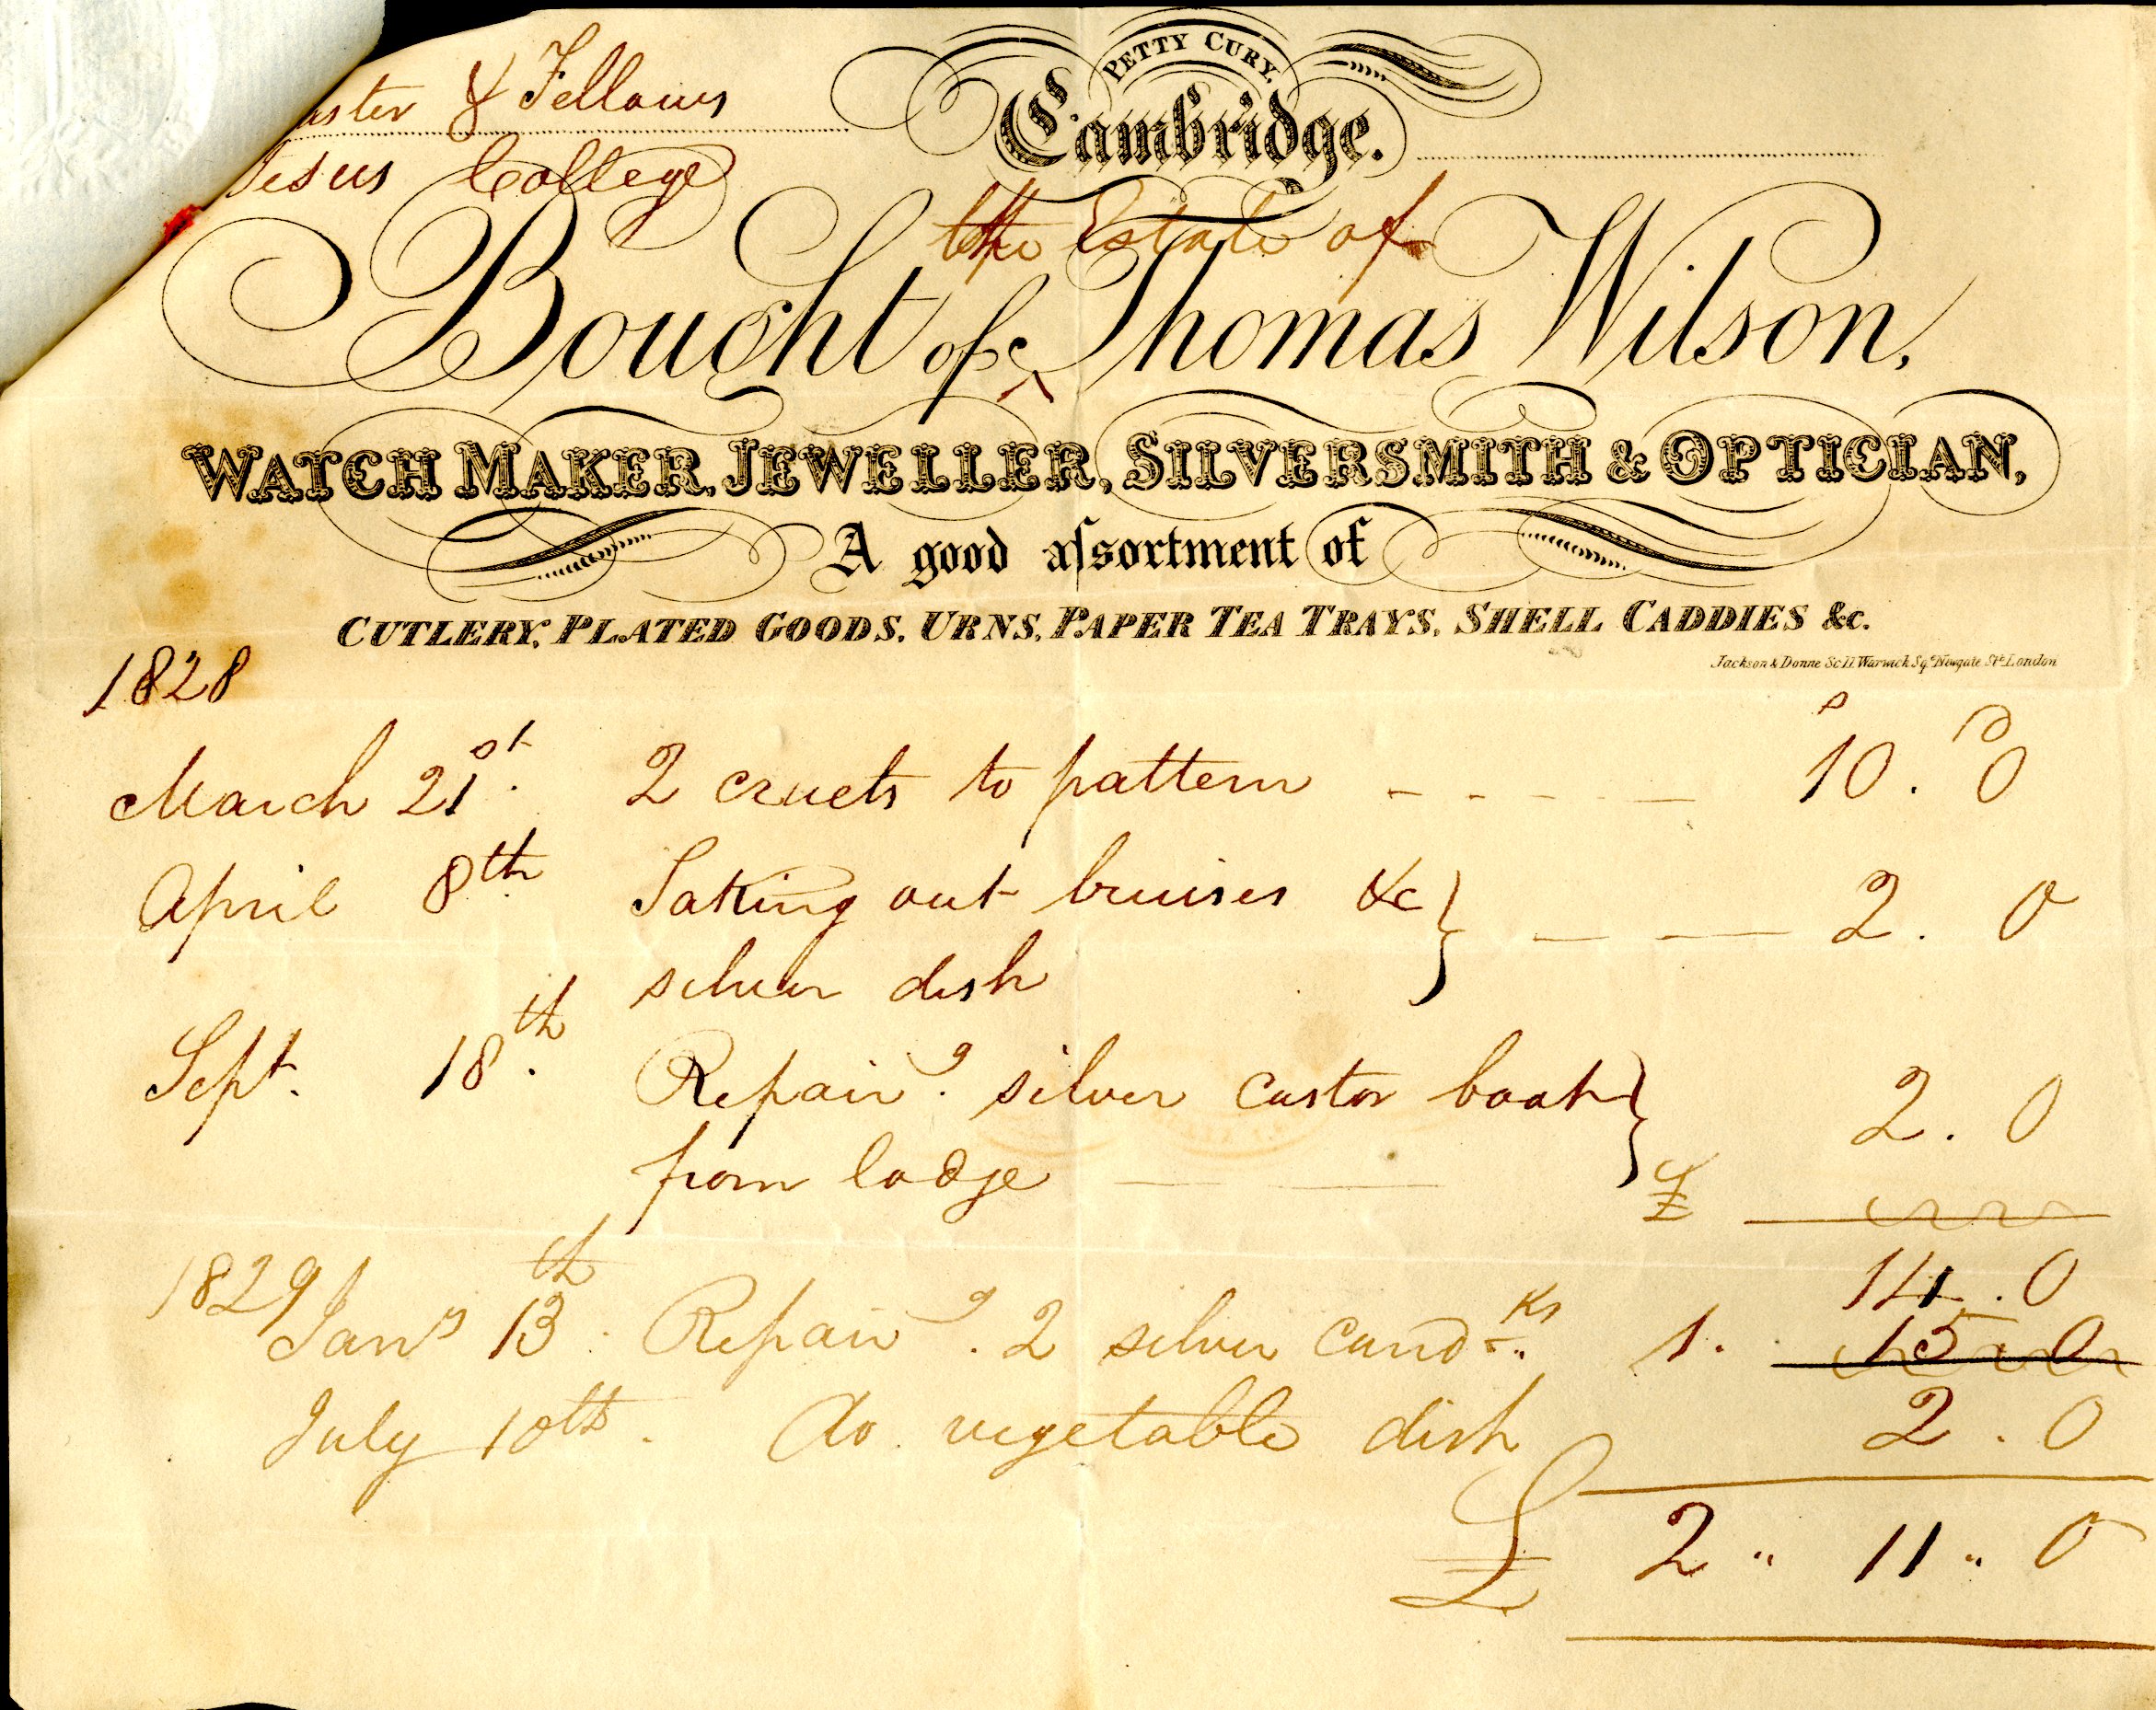 PETTY CURY,
Cambridge.
& Fellows
Jesus College
the Estate of
Bought of ‸ Thomas Wilson,
WATCH MAKER, JEWELLER, SILVERSMITH & OPTICIAN,
A good aſsortment of
CUTLERY, PLATED GOODS, URNS, PAPER TEA TRAYS, SHELL CADDIES &c.
Jackson & Donne Sc 11 Warwick Sqe Newgate Stt London
1828
s D
March 21st. 2 cruets to pattern - - - - - 10 . 0
April 8th Taking out bruises &c } — — 2 . 0
silver dish
Sept. 18th. Repairg. silver castor boat } 2 . 0
from lodge — — £
14 . 0
1829
Jany 13th. Repairg. 2 silver candks. 1. 15 . 0
July 10th. Do. vegetable dish 2 . 0
£ 2 " 11 " 0